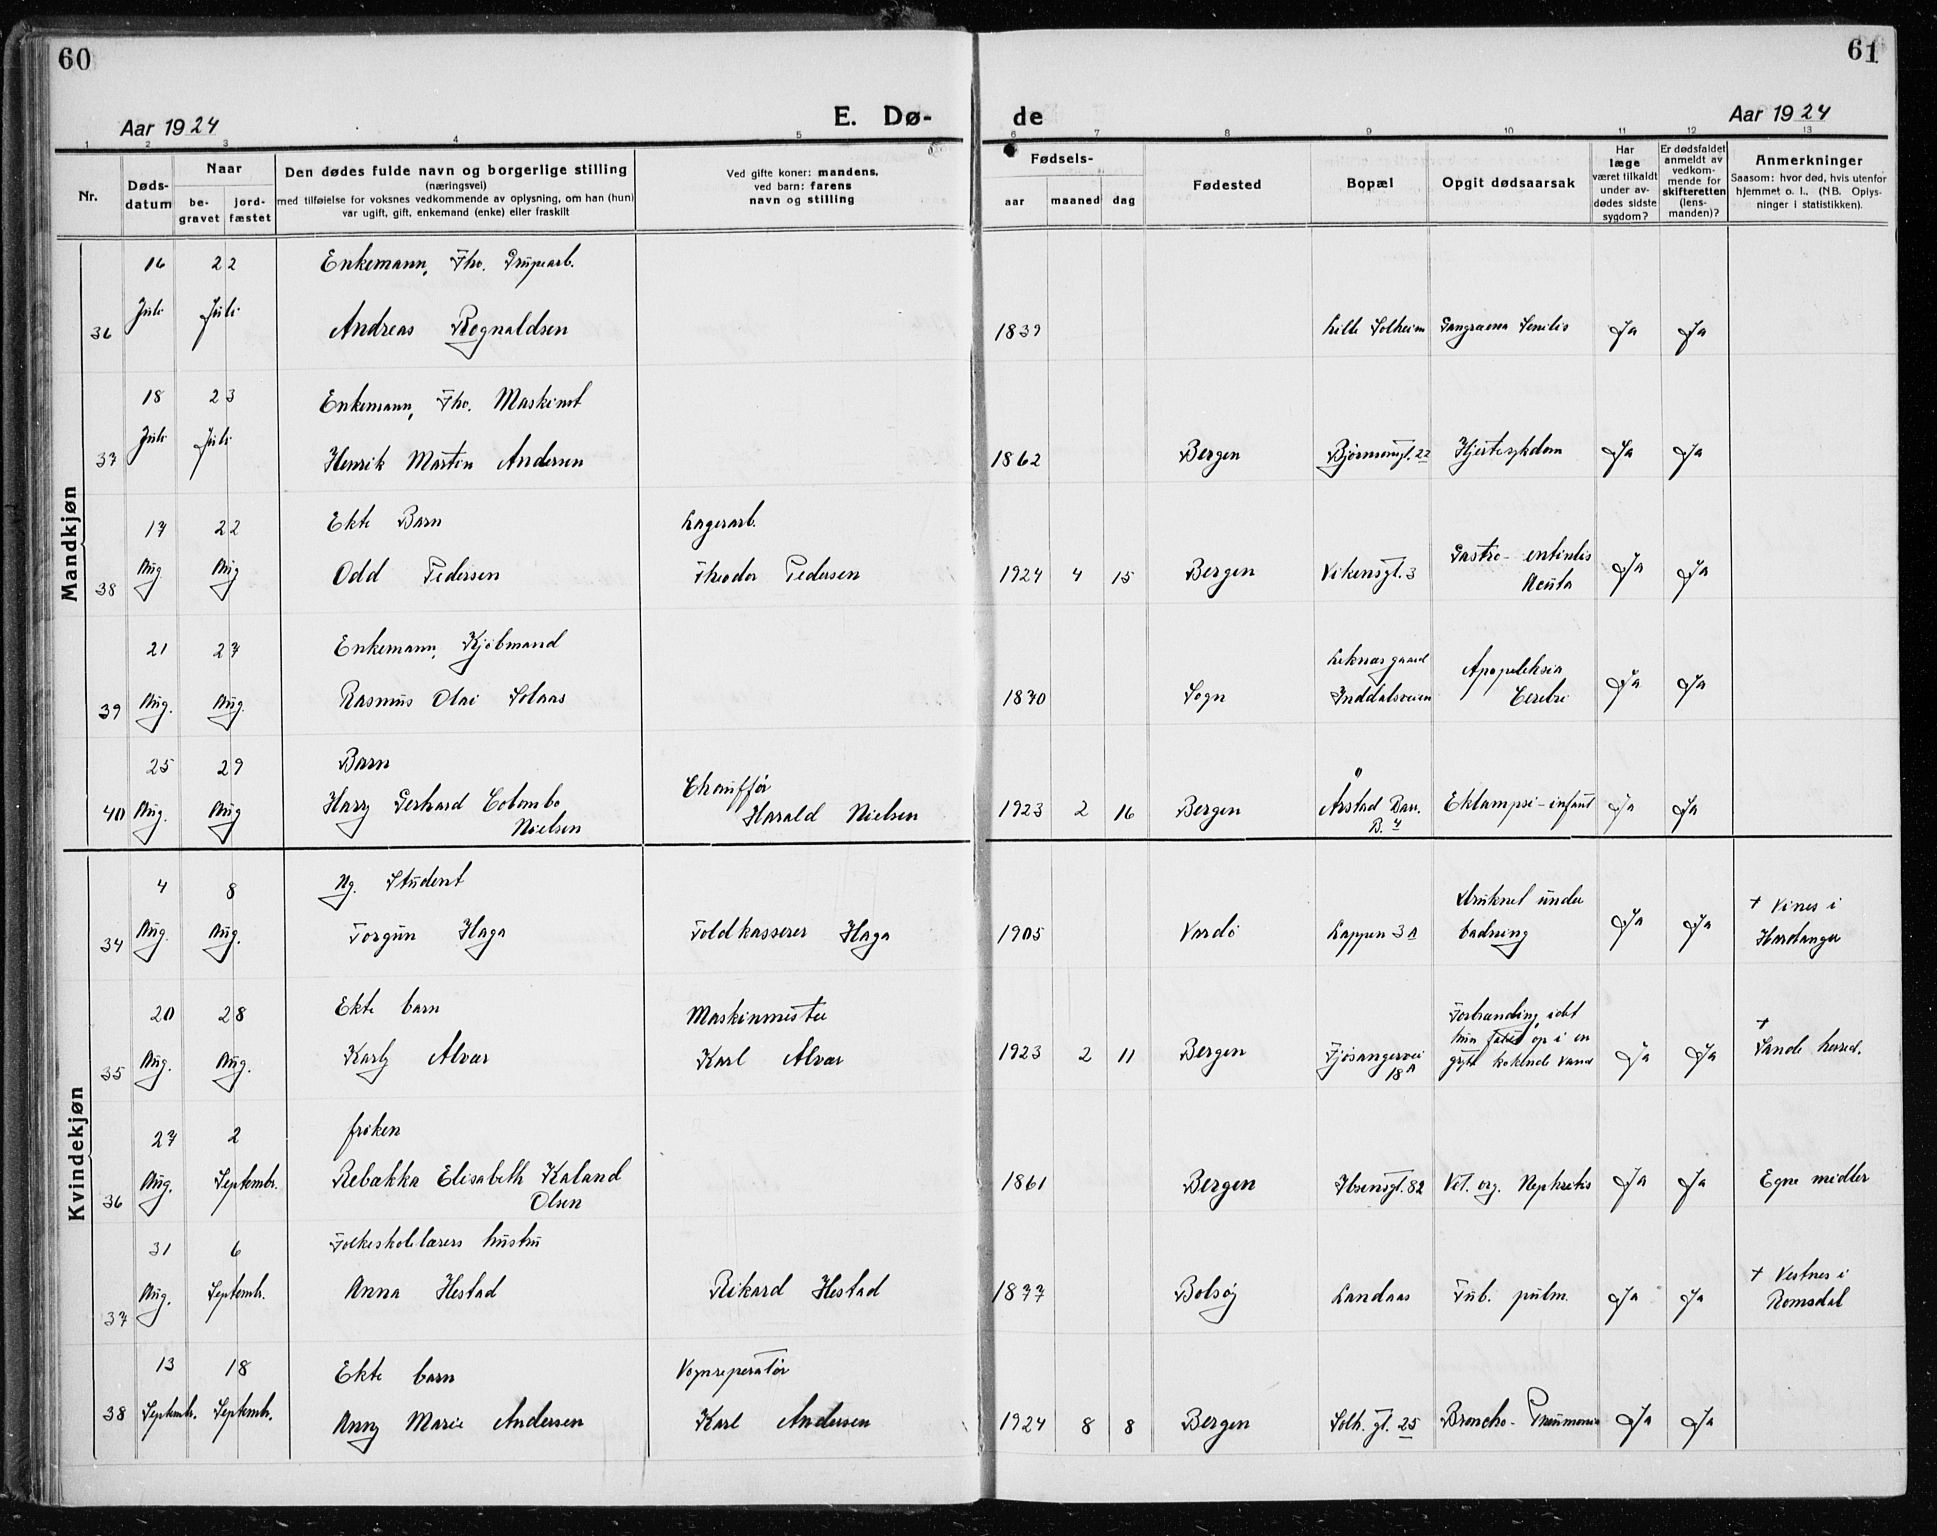 60
61
Aar 1924
E. Dø-
de
Aar 1924
1 2 3 4 5 6 7 8 9 10 11 12 13
Nr.
Døds-
datum
Naar
be-
gravet
jord-
fæstet
Den dødes fulde navn og borgerlige stilling
(næringsvei)
med tilføielse for voksnes vedkommende av oplysning, om han (hun)
var ugift, gift, enkemand (enke) eller fraskilt
Ved gifte koner: mandens,
ved barn: farens
navn og stilling
Fødsels-
aar maaned dag
Fødested
Bopæl
Opgit dødsaarsak
Har
læge
været tilkaldt
under av-
dødes sidste
sygdom?
Er dødsfaldet
anmeldt av
vedkom-
mende for
skifteretten
(lens-
manden)?
Anmerkninger
Saasom: hvor død, hvis utenfor
hjemmet o. l.. (NB. Oplys-
ninger i statistikken).
Mandkjøn
16 22 Enkemann, Fhv.
36 Juli Juli Andreas Rognaldsen 1839 Lille Solheim Gangraena Senilis Ja Ja
18 23 Enkemann, Fhv. Maskinist
37 Juli Juli Henrik Martin Andersen 1862 Bergen Bjørnsonsgt. 22 Hjertesykdom Ja Ja
17 22 Ekte Barn Lagerarb. Gastro-
38 Aug Aug Odd Pedersen Theodor Pedersen 1924 4 15 Bergen Vikensgt. 3 Acuta Ja Ja
21 27 Enkemann, Kjøbmand
39 Aug. Aug. Rasmus Olai Solaas 1830 Sogn Inddalsveien Cerebri Ja Ja
25 29 Barn Chauffør
40 Aug. Aug Harry Gerhard Colombo Harald Nielsen 1923 2 16 Bergen Årstad Bar. Eklampsi-infant Ja Ja
Nielsen B. 4
Kvindekjøn
4 8 Ug. Student Druknet under + Vines i
34 Aug. Aug. Torgun Haga Toldkasserer Haga 1905 Vardø Lappen 3A badning Ja Ja Hardanger
20 28 Ekte barn Maskinmester Forbrænding, idet +
35 Aug. Aug. Karly Alvær Karl Alvær 1923 2 11 Bergen Fjøsangervei hun faldt op i en Ja Ja Sande herred.
18A gryte kokende vand
27 2 frøken
36 Aug. Septembr. Rebækka Elisabeth Kaland 1861 Bergen Ibsensgt. 82 Vit. org. Nephritis Ja Ja Egne midler
Olsen
31 6 Folkeskolelærers hustru + Vestnes i
37 Aug. Septembr. Anna Hestad Rikard Hestad 1877 Bolsøy Landaas Tub. pulm. Ja Ja Romsdal
13 18 Ekte barn Vognreperatør
38 Septembr. Septembr. Anny Marie Andersen Karl Andersen 1924 8 8 Bergen Solh. gt. 25 Broncho-Pneumonia Ja Ja